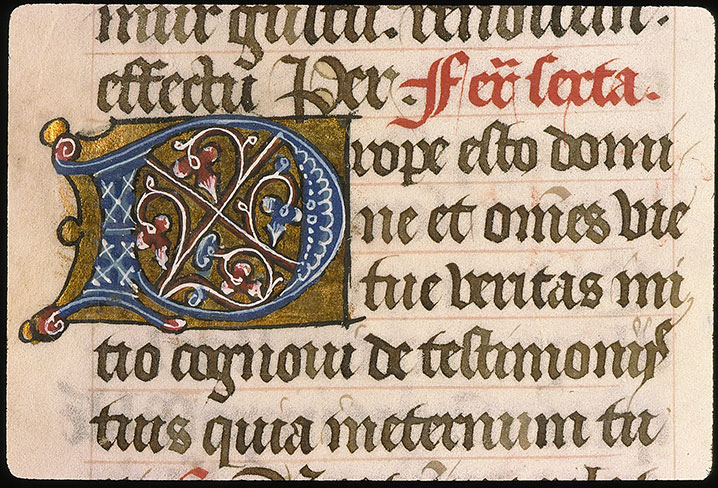 mur gustu. renouem.
effectu Per. Fer̄ sexta.
Prope esto domi
ne et om̄es vie
tue veritas ini
tio cognoui de testimonijs
tuis quia ineternum tu